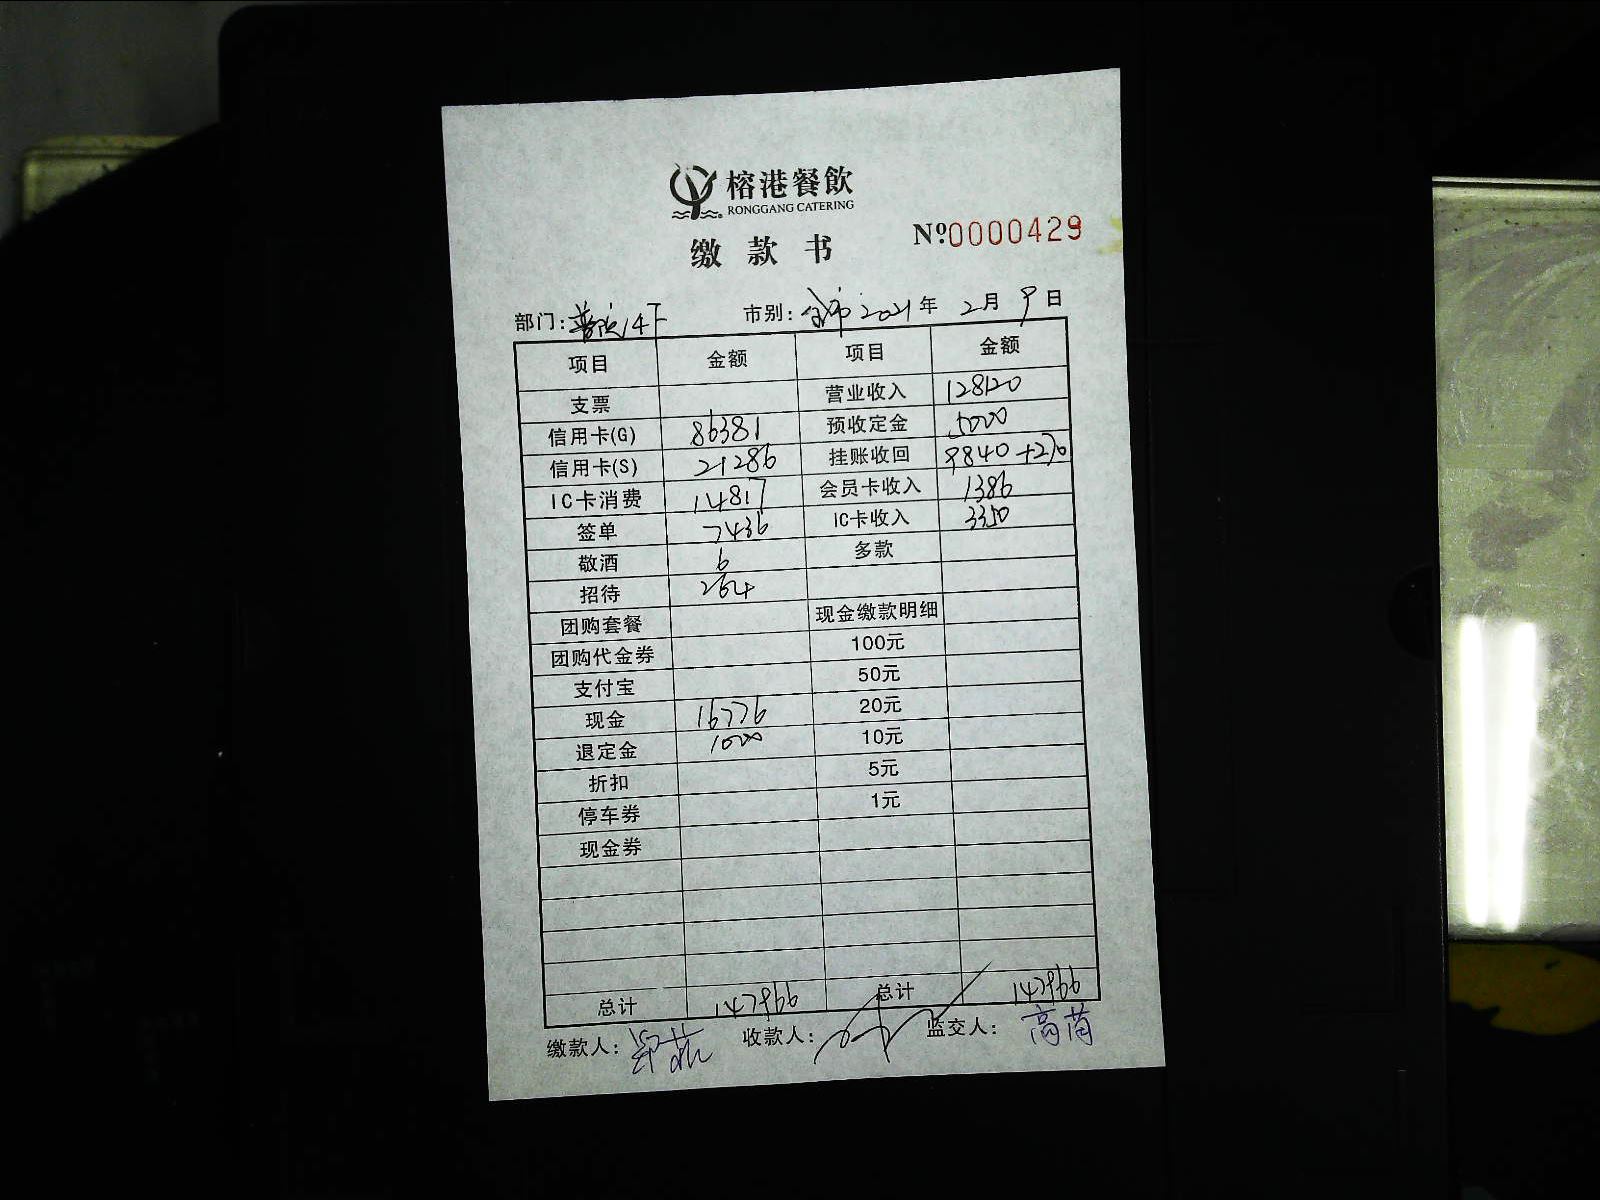 榕港餐飲
RONGGANG CATERING
缴款书
Nº0000429
部门: 市别: 全市 2021年 2月 9日
项目 金额 项目 金额
支票 营业收入 128120
信用卡(G) 86381 预收定金 5000
信用卡(S) 21286 挂账收回 9840+270
IC卡消费 14817 会员卡收入 1386
签单 7436 IC卡收入 3350
敬酒 6 多款
招待 264
团购套餐 现金缴款明细
团购代金券 100元
支付宝 50元
现金 16776 20元
退定金 1000 10元
折扣 5元
停车券 1元
现金券
总计 147966 总计 147966
缴款人: 收款人: 监交人: